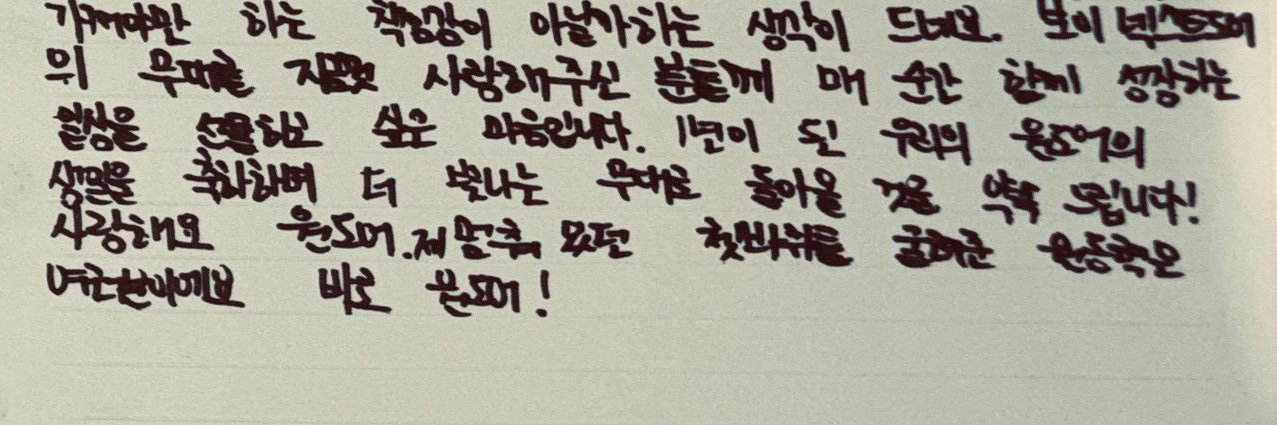 가져야만 하는 책임감이 아닐까하는 생각이 드네요. 보이넥스트도어
의 무대를 지금껏 사랑해주신 분들께 매 순간 함께 성장하는
일상을 선물하고 싶은 마음입니다. 1년이 된 우리의 원도어의
생일을 축하하며 더 빛나는 무대로 돌아올 것을 약속 드립니다!
사랑해요 원도어. 제 멈춰 있던 쳇바퀴를 굴려준 원동력은
여러분이에요 바로 원도어!